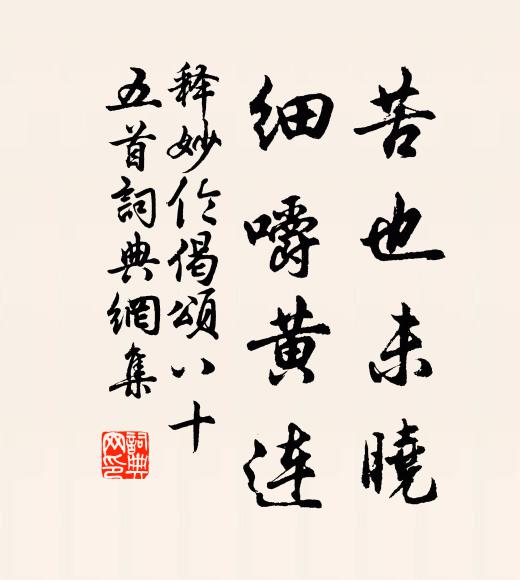 苦也未曉
細嚼黃連
释妙伦偈頌八十
五首詞典網集
詞典网印